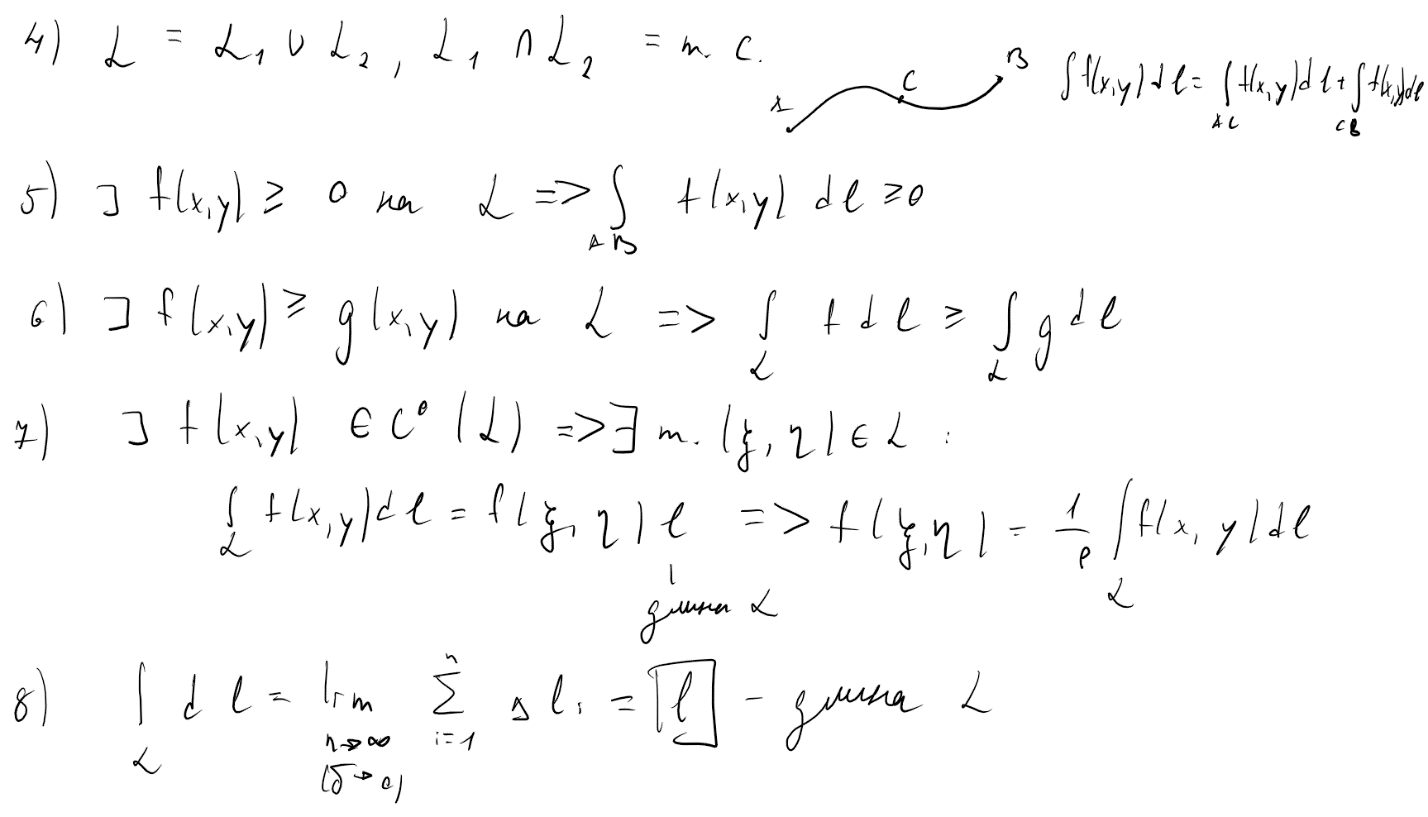 4) L = L₁ ∪ L₂, L₁ ∩ L₂ = т. C. A C B ∫f(x,y)dl = ∫_{AC} f(x,y)dl + ∫_{CB} f(x,y)dl
5) ] f(x,y) ≥ 0 на L => ∫_{AB} f(x,y) dl ≥ 0
6) ] f(x,y) ≥ g(x,y) на L => ∫_L f dl ≥ ∫_L g dl
7) ] f(x,y) ∈ C⁰(L) => ∃ т. (ξ, η) ∈ L :
∫_L f(x,y)dl = f(ξ, η) l => f(ξ,η) = 1/l ∫_L f(x,y)dl
длина L
8) ∫_L dl = lim_{n→∞ (δ→0)} ∑_{i=1}^{n} Δlᵢ = l - длина L